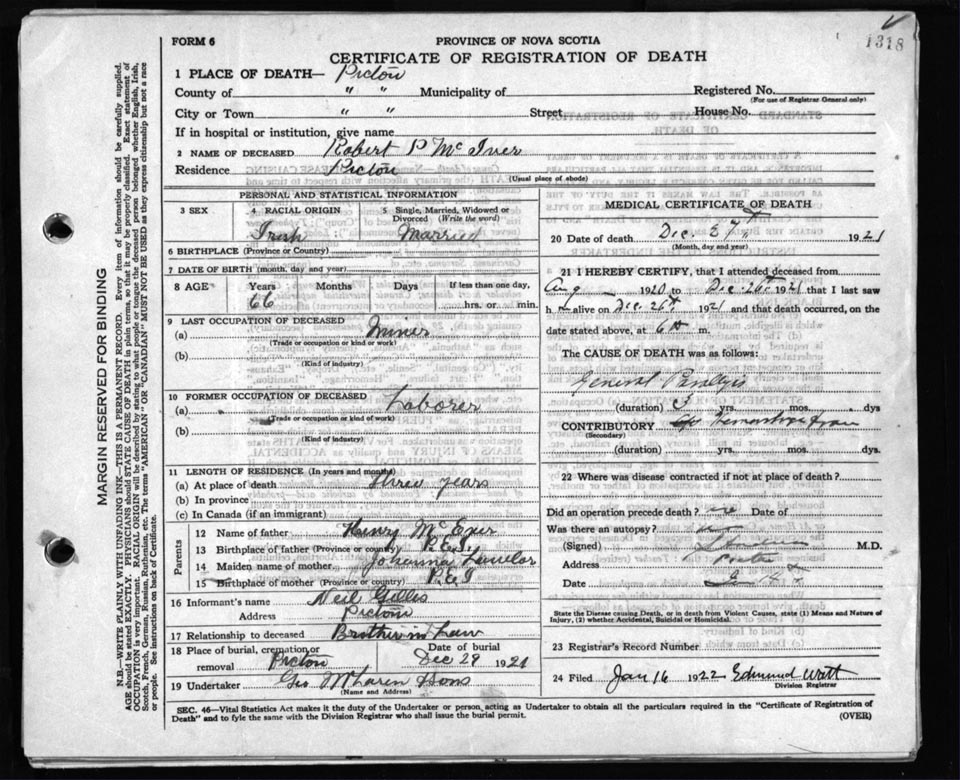 1318
FORM 6
PROVINCE OF NOVA SCOTIA
CERTIFICATE OF REGISTRATION OF DEATH
1 PLACE OF DEATH— Pictou
County of " " Municipality of Registered No.
(For use of Registrar General only)
City or Town " " Street House No.
If in hospital or institution, give name
2 NAME OF DECEASED Robert P McIver
Residence Pictou
(Usual place of abode)
PERSONAL AND STATISTICAL INFORMATION
3 SEX 4 RACIAL ORIGIN 5 Single, Married, Widowed or Divorced (Write the word)
Irish Married
6 BIRTHPLACE (Province or Country)
7 DATE OF BIRTH (month, day and year)
8 AGE Years Months Days If less than one day,
66 hrs. or min.
9 LAST OCCUPATION OF DECEASED
(a) Miner
(Trade or occupation or kind of work)
(b)
(Kind of industry)
10 FORMER OCCUPATION OF DECEASED
(a) Laborer
(Trade or occupation or kind of work)
(b)
(Kind of industry)
11 LENGTH OF RESIDENCE (In years and months)
(a) At place of death three years
(b) In province
(c) In Canada (if an immigrant)
Parents
12 Name of father Henry McEver
13 Birthplace of father (Province or country) P.E.I.
14 Maiden name of mother Johanna
15 Birthplace of mother (Province or country) P.E.I
16 Informant's name Neil Gillis
Address Pictou
17 Relationship to deceased Brother in Law
18 Place of burial, cremation or removal Pictou
Date of burial Dec 29 1921
19 Undertaker Geo McLaren Sons
(Name and Address)
MEDICAL CERTIFICATE OF DEATH
20 Date of death Dec 27th 1921
(Month, day and year)
21 I HEREBY CERTIFY, that I attended deceased from
Aug 1920 to Dec 26th 1921 that I last saw
h alive on Dec 26th 1921 and that death occurred, on the
date stated above, at 6 m.
The CAUSE OF DEATH was as follows:
General Paralysis
(duration) 3 yrs. mos. dys
CONTRIBUTORY Hemorrhage from
(Secondary)
(duration) yrs. mos. dys.
22 Where was disease contracted if not at place of death?
Did an operation precede death? no Date of
Was there an autopsy? no
(Signed) M.D.
Address Pictou
Date
State the Disease causing Death, or in death from Violent Causes, state (1) Means and Nature of
Injury, (2) whether Accidental, Suicidal or Homicidal.
23 Registrar's Record Number
24 Filed Jan 16 1922 Edmund Watt
Division Registrar
SEC. 46—Vital Statistics Act makes it the duty of the Undertaker or person acting as Undertaker to obtain all the particulars required in the "Certificate of Registration of
Death" and to fyle the same with the Division Registrar who shall issue the burial permit.
(OVER)
MARGIN RESERVED FOR BINDING
N.B.—WRITE PLAINLY WITH UNFADING INK—THIS IS A PERMANENT RECORD. Every item of information should be carefully supplied.
AGE should be stated EXACTLY. PHYSICIANS should STATE CAUSE OF DEATH in plain terms, so that it may be properly classified. Exact statement of
OCCUPATION is very important. RACIAL ORIGIN will be described by stating to what people or tongue the deceased person belonged whether English, Irish,
Scotch, French, German, Russian, Ruthenian, etc. The terms "AMERICAN" OR "CANADIAN" MUST NOT BE USED as they express citizenship but not a race
or people. See instructions on back of Certificate.